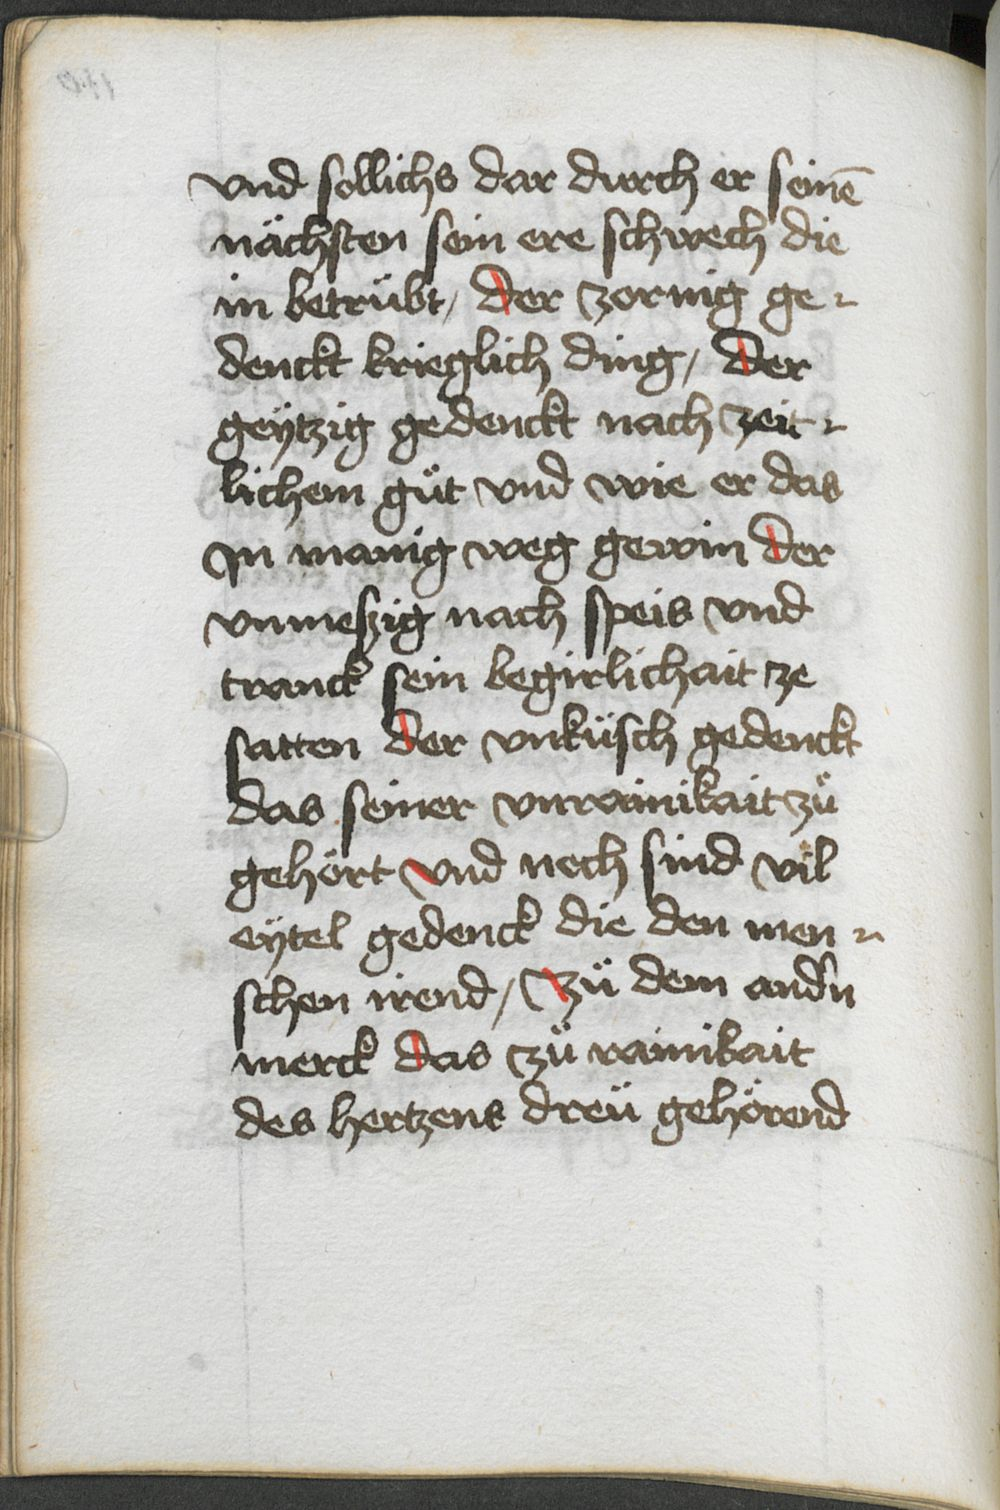 vnd sollichs dar durch er seinē
nächsten sein ere schwech die
in betrübt, der zornig ge-
denckt krieglich ding, der
geÿtzig gedenckt nach zeit-
lichem gu̇t vnd wie er das
Jn manig weg gewin der
vnmeszig nach speis vnd
tranck sein begirlichait ze
satten der vnküsch gedenckt
das seiner vnrainikait zü
gehört vnd noch sind vil
eÿtel gedenck die den men-
schen irend, Zü dem andn
merck das zü rainikait
des hertzens dreü gehörend